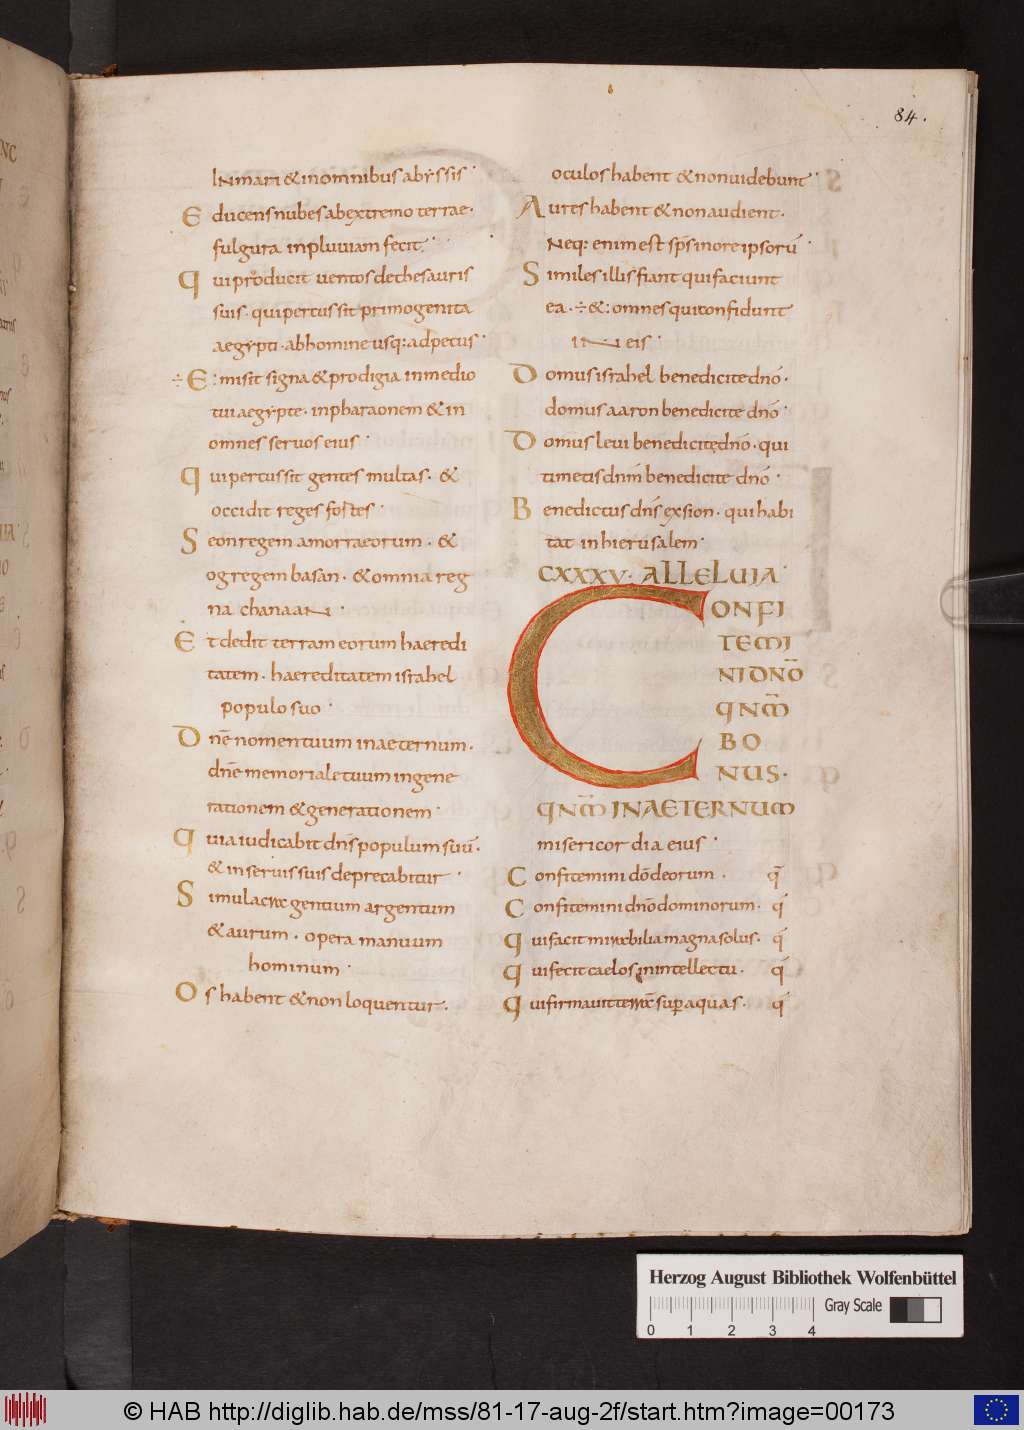 84.
INmari & inomnibus abyssis
Educens nubes abextremo terrae.
fulgura inpluviam fecit
qui producit ventos dethesauris
suis. qui percussit primogenita
aegypti. abhomine usq: adpecus
÷ E: misit signa & prodigia inmedio
tui aegypte. inpharaonem & in
omnes servos eius
qui percussit gentes multas. &
occidit reges fortes
Seon regem amorraeorum. &
og regem basan. & omnia reg
na chanaan
Et dedit terram eorum haeredi
tatem. haereditatem israhel
populo suo
Dnē nomen tuum inaeternum.
dnē memoriale tuum ingene
rationem & generationem
quia iudicabit dns̄ populum suū.
& in servis suis deprecabitur
Simulacra gentium argentum
& aurum. opera manuum
hominum
Os habent & non loquentur.
oculos habent & non videbunt
Aures habent & non audient.
Neq: enim est sps̄ inore ipsorū
Similes illis fiant qui faciunt
ea. ÷ &: omnes qui confidunt
iN eis
Domus israhel benedicite dnō.
domus aaron benedicite dnō
Domus levi benedicite dnō. qui
timetis dnm̄ benedicite dnō
Benedictus dns̄ exsion. qui habi
tat inhierusalem
CXXXV. ALLELUIA
CONFI
TEMI
NI DNŌ
QNM̄
BO
NUS.
QNM̄ INAETERNUM
misericordia eius
Confitemini dō deorum. q̄
Confitemini dnō dominorum. q̄
qui facit mirabilia magna solus. q̄
qui fecit caelos inintellectu. q̄
qui firmavit terrā super aquas. q̄
Herzog August Bibliothek Wolfenbüttel
Gray Scale
0 1 2 3 4
© HAB http://diglib.hab.de/mss/81-17-aug-2f/start.htm?image=00173